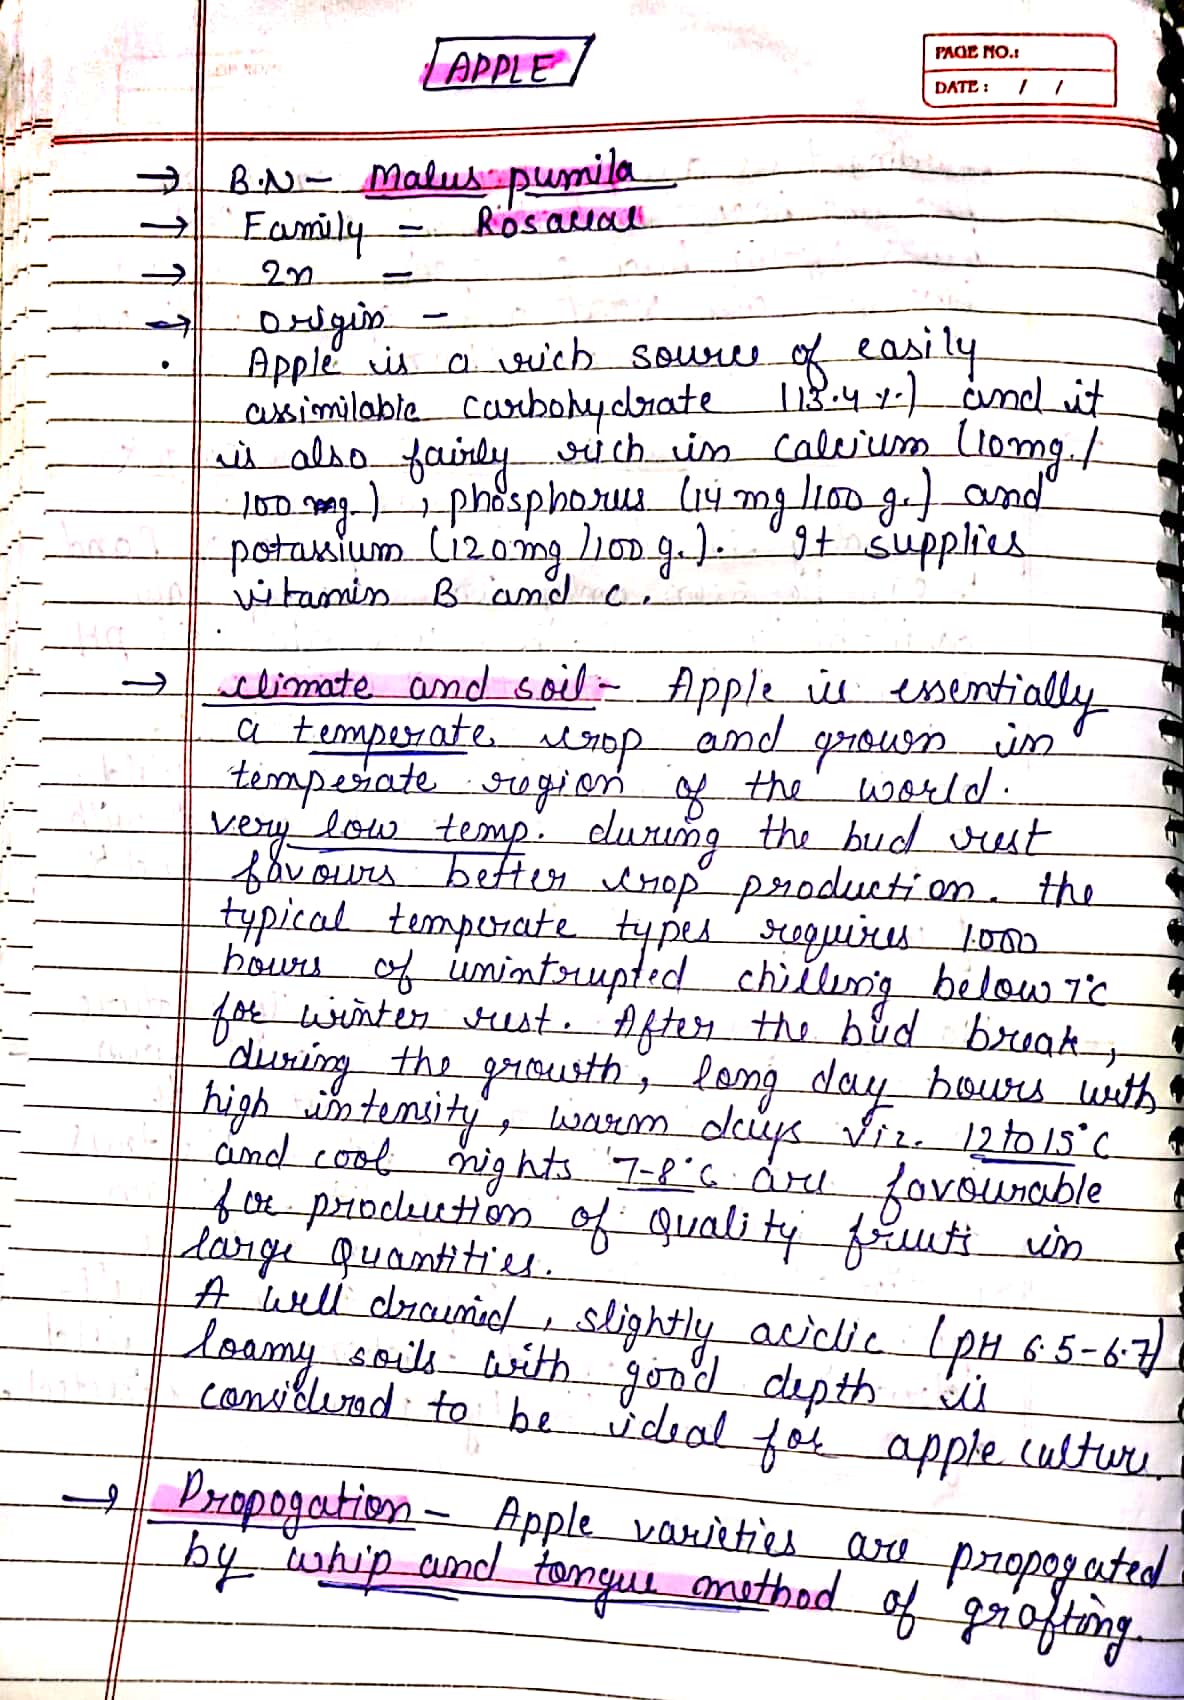 APPLE
PAGE NO.:
DATE: / /
→ B.N - Malus pumila
→ Family - Rosaceae
→ 2n =
→ origin -
. Apple is a rich source of easily
assimilable carbohydrate (13.4%) and it
is also fairly rich in calcium (10mg./
100 mg.), phosphorus (14 mg/100 g.) and
potassium (120mg/100 g.). It supplies
vitamin B and c.
→ climate and soil - Apple is essentially
a temperate crop and grown in
temperate region of the world.
very low temp. during the bud rest
favours better crop production. the
typical temperate types requires 1000
hours of unintrupted chilling below 7°C
for winter rest. After the bud break,
during the growth, long day hours with
high intensity, warm days viz. 12 to 15°C
and cool nights 7-8°C are favourable
for production of quality fruits in
large quantities.
A well drained, slightly acidic (pH 6.5-6.7)
loamy soils with good depth is
considered to be ideal for apple culture.
→ Propogation - Apple varieties are propogated
by whip and tongue method of grafting.